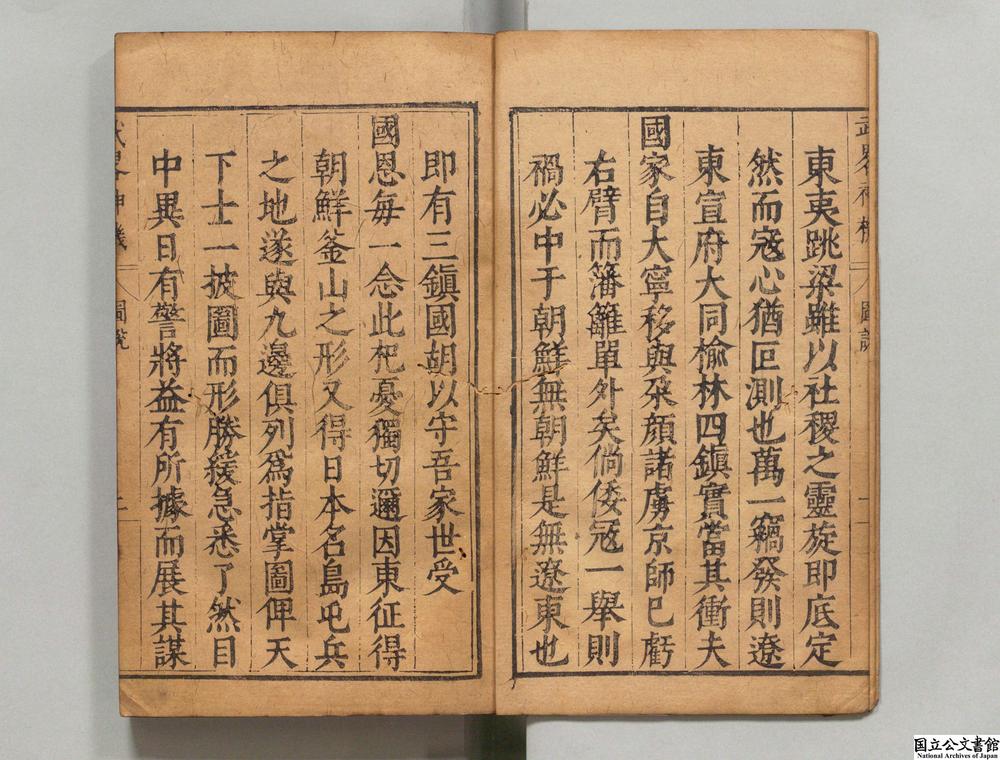 東夷跳梁雖以社稷之靈旋即底定
然而寇心猶叵測也萬一竊發則遼
東宣府大同榆林四鎮實當其衝夫
國家自大寧移與朶顏諸虜京師已虧
右臂而籓籬單外矣倘倭寇一舉則
禍必中于朝鮮無朝鮮是無遼東也
即有三鎮國胡以守吾家世受
國恩每一念此杞憂獨切邇因東征得
朝鮮釜山之形又得日本名島屯兵
之地遂與九邊俱列為指掌圖俾天
下士一披圖而形勝緩急悉了然目
中異日有警將益有所據而展其謀
武畧神機
圖說
二
国立公文書館
National Archives of Japan